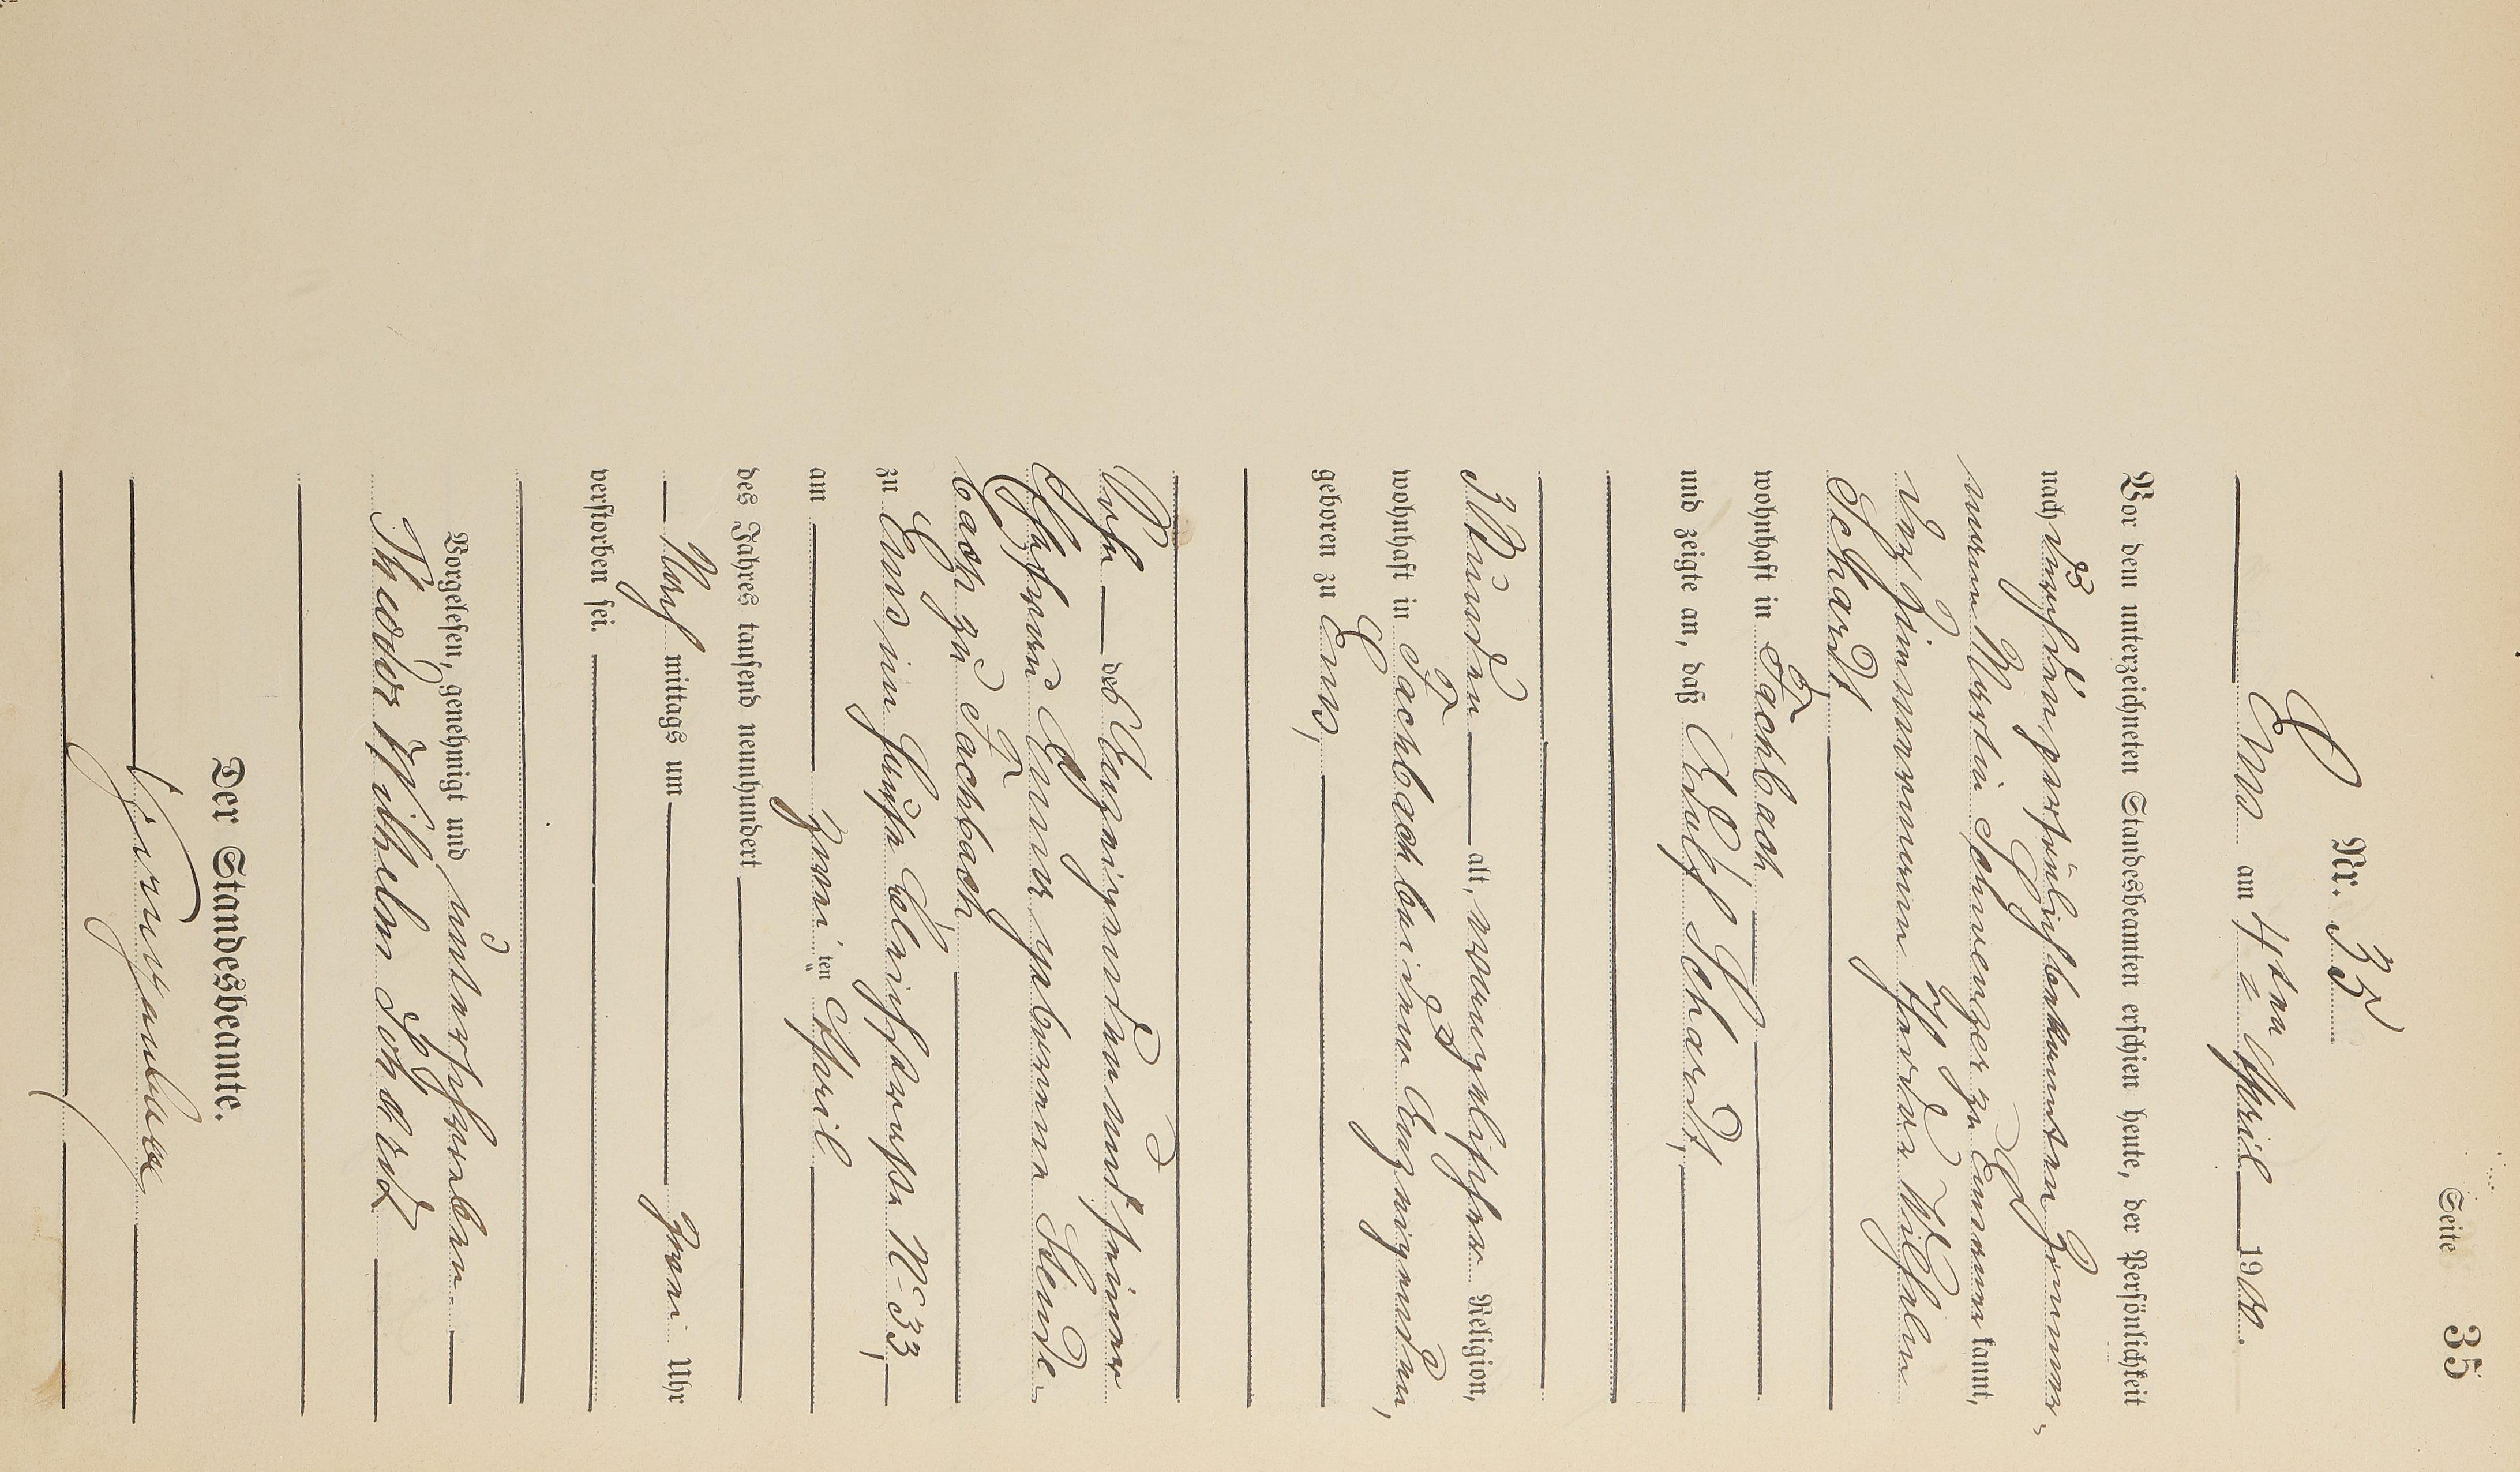 Seite 35
Nr. 35
Ems am 4ten April 1900.
Vor dem unterzeichneten Standesbeamten erschien heute, der Persönlichkeit
nach durch den persönlich bekannten Zimmer-
mann Martin Schwenzer zu Ems anerkannt,
der Zimmermann Theodor Wilhelm
Schardt
wohnhaft in Fachbach
und zeigte an, daß Adolf Schardt,
3 Stunden alt, evangelischer Religion,
wohnhaft in Fachbach bei dem Anzeigenden,
geboren zu Ems,
Sohn des Anzeigenden und seiner
Ehefrau Anna geborene Linde-
bach zu Fachbach
zu Ems, im Hause No 33,
am zweiten April
des Jahres tausend neunhundert
Nach mittags um zwei Uhr
verstorben sei.
Vorgelesen, genehmigt und unterschrieben
Theodor Wilhelm Schardt
Der Standesbeamte.